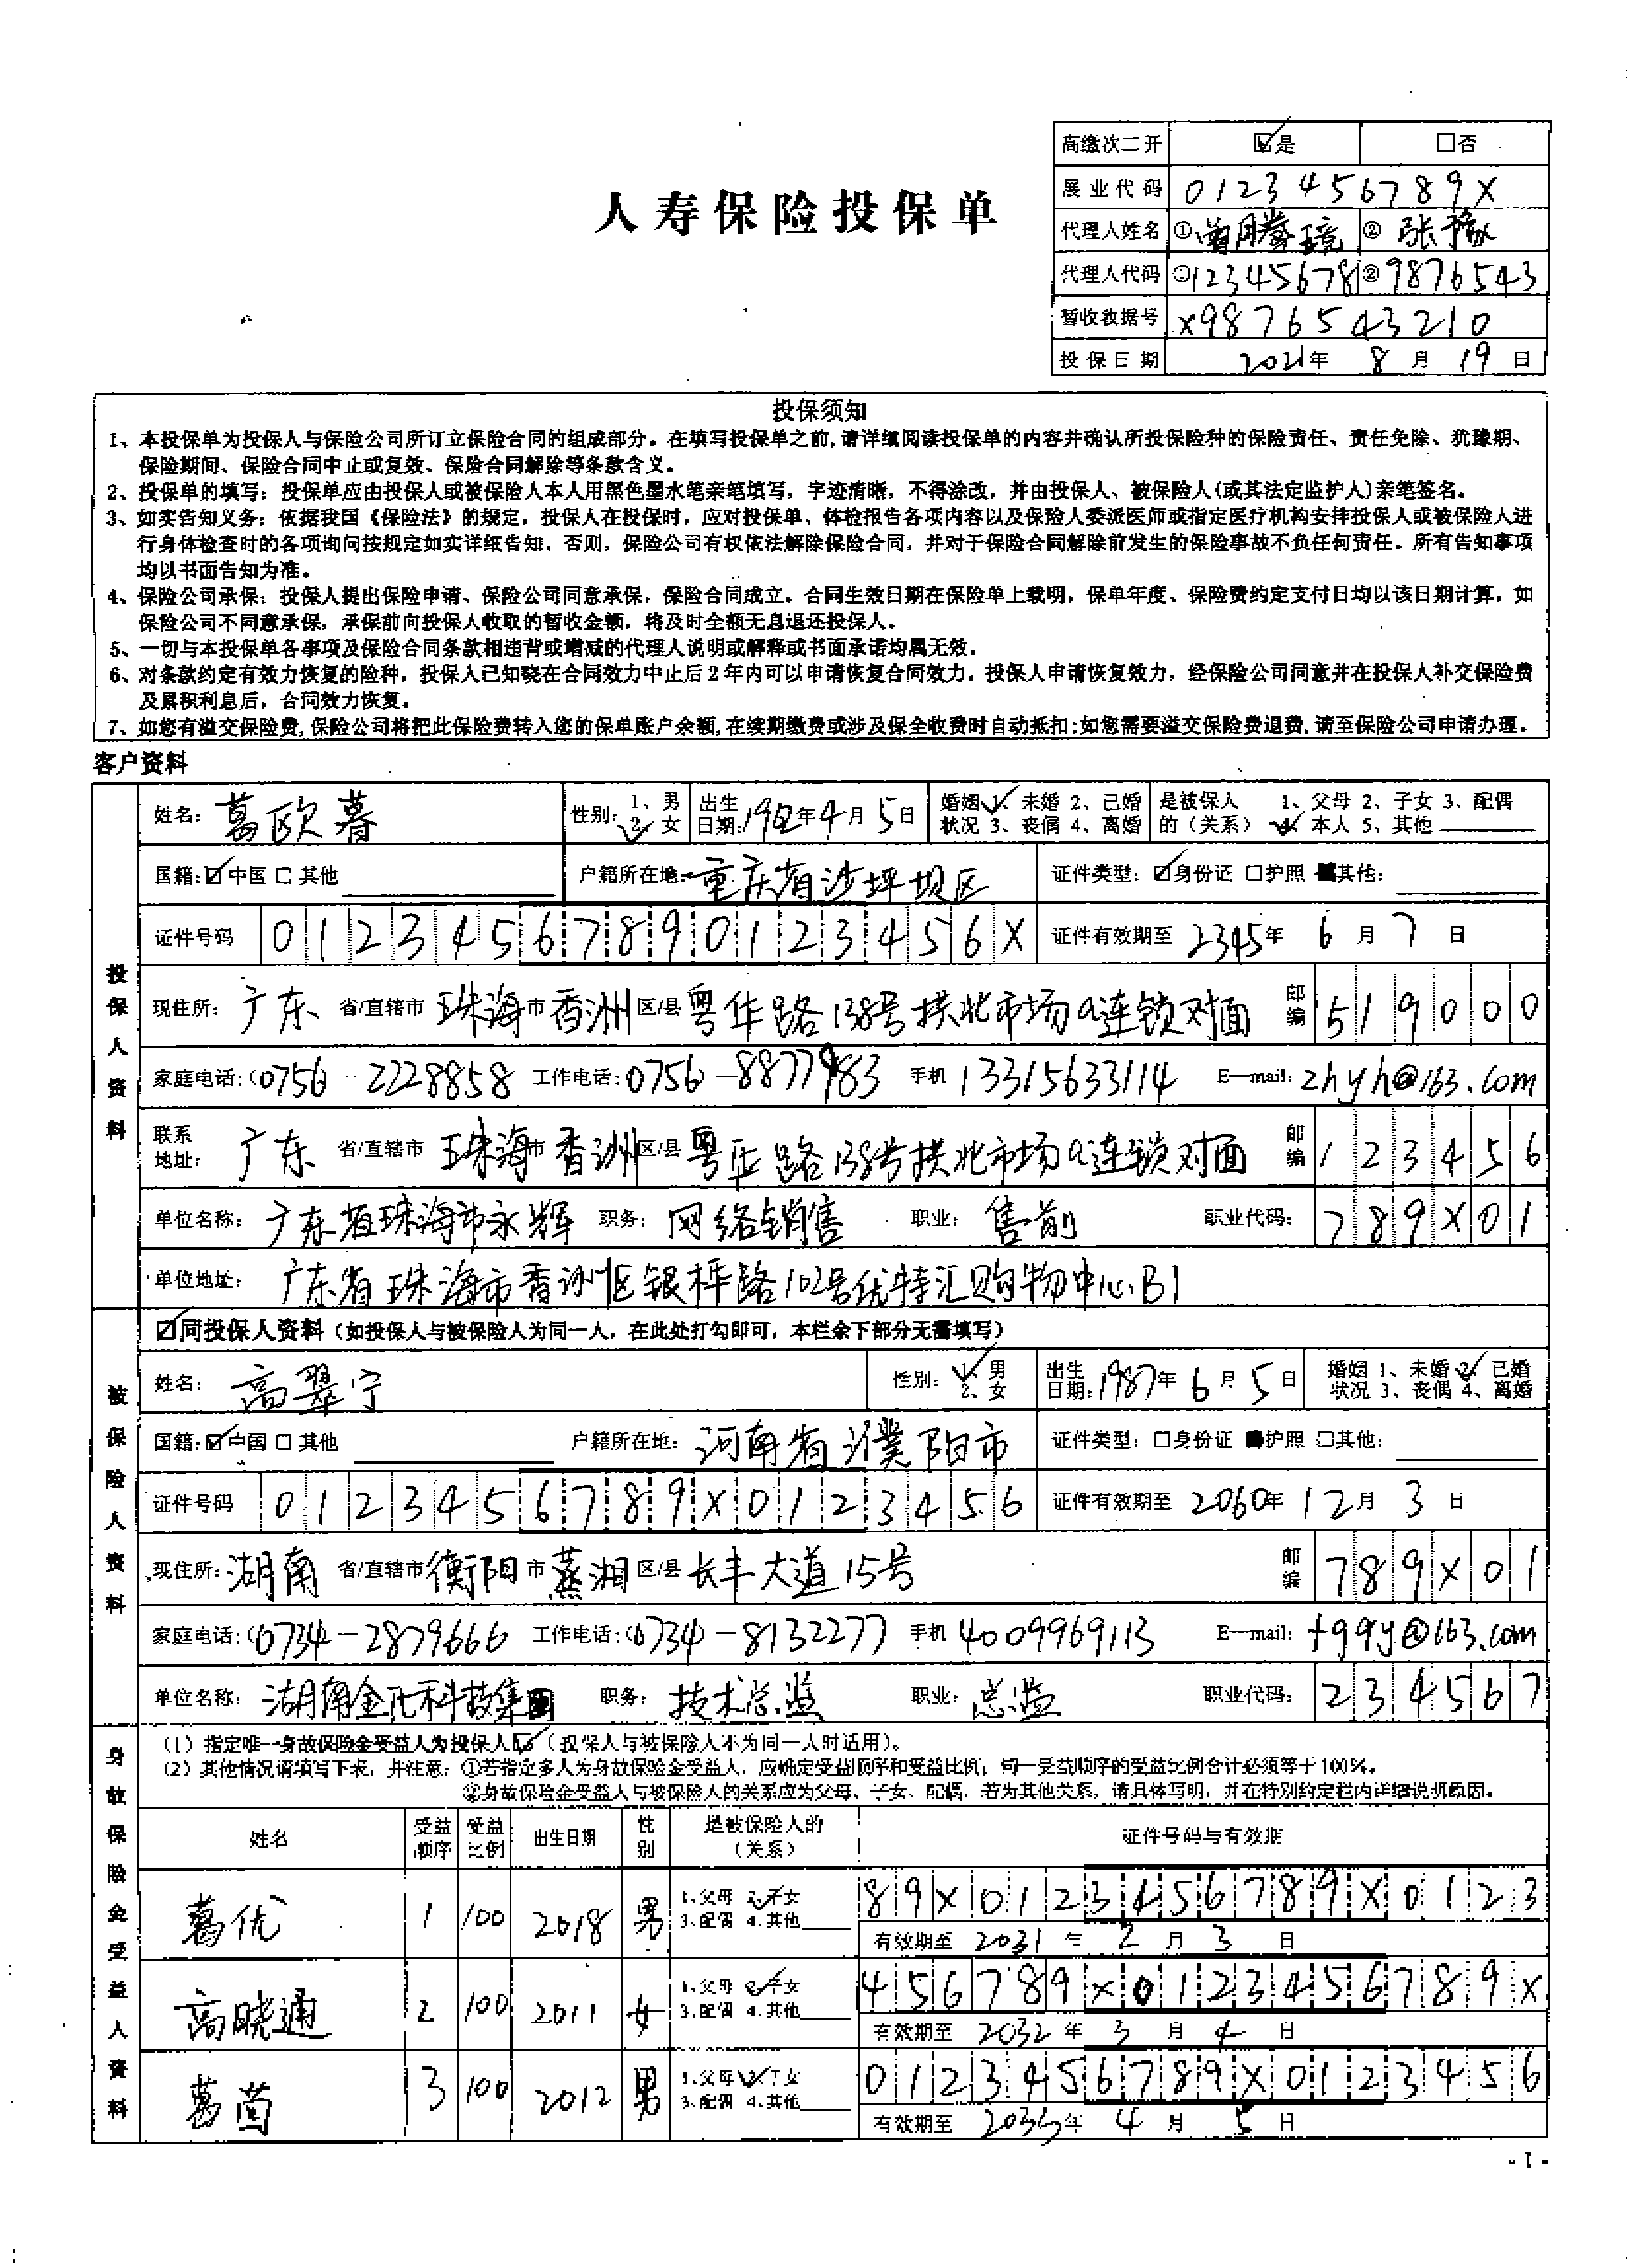 高缴次二开 ☑是 □否
展业代码 0123456789X
人寿保险投保单
代理人姓名 ①曾腾璄 ② 张豫
代理人代码 ①12345678 ②9876543
暂收收据号 X9876543210
投保日期 2021年 8月 19日
投保须知
1、本投保单为投保人与保险公司所订立保险合同的组成部分。在填写投保单之前,请详细阅读投保单的内容并确认所投保险种的保险责任、责任免除、犹豫期、
保险期间、保险合同中止或复效、保险合同解除等条款含义。
2、投保单的填写：投保单应由投保人或被保险人本人用黑色墨水笔亲笔填写，字迹清晰，不得涂改，并由投保人、被保险人(或其法定监护人)亲笔签名。
3、如实告知义务：依据我国《保险法》的规定，投保人在投保时，应对投保单、体检报告各项内容以及保险人委派医师或指定医疗机构安排投保人或被保险人进
行身体检查时的各项询问按规定如实详细告知，否则，保险公司有权依法解除保险合同，并对于保险合同解除前发生的保险事故不负任何责任。所有告知事项
均以书面告知为准。
4、保险公司承保：投保人提出保险申请、保险公司同意承保，保险合同成立。合同生效日期在保险单上载明，保单年度、保险费约定支付日均以该日期计算，如
保险公司不同意承保，承保前向投保人收取的暂收金额，将及时全额无息退还投保人。
5、一切与本投保单各事项及保险合同条款相违背或增减的代理人说明或解释或书面承诺均属无效。
6、对条款约定有效力恢复的险种，投保人已知晓在合同效力中止后2年内可以申请恢复合同效力。投保人申请恢复效力，经保险公司同意并在投保人补交保险费
及累积利息后，合同效力恢复。
7、如您有溢交保险费,保险公司将把此保险费转入您的保单账户余额,在续期缴费或涉及保全收费时自动抵扣;如您需要溢交保险费退费,请至保险公司申请办理。
客户资料
投保人资料
姓名：葛欧暮 性别：1、男 2、女 出生日期： 年4月5日 婚姻状况 1、未婚 2、已婚 3、丧偶 4、离婚 是被保人的（关系） 1、父母 2、子女 3、配偶 4、本人 5、其他
国籍：☑中国 □其他 户籍所在地：重庆省沙坪坝区 证件类型：☑身份证 □护照 ■其他：
证件号码 01234567890123456X 证件有效期至 2345年 6月 7日
现住所：广东 省/直辖市 珠海市 香洲区/县 粤华路138号拱北市场a连锁对面 邮编 519000
家庭电话：(0756-2228858 工作电话：0756-8877983 手机 13315633114 E—mail：zhyh@163.com
联系地址：广东 省/直辖市 珠海市 香洲区/县 粤华路138号拱北市场a连锁对面 邮编 123456
单位名称：广东省珠海市永辉 职务：网络销售 职业：售前 职业代码：789X01
单位地址：广东省珠海市香洲区银桦路102号优特汇购物中心B1
被保险人资料
☑同投保人资料（如投保人与被保险人为同一人，在此处打勾即可，本栏余下部分无需填写）
姓名：高翠宁 性别：1、男 2、女 出生日期：1987年6月5日 婚姻状况 1、未婚 2、已婚 3、丧偶 4、离婚
国籍：☑中国 □其他 户籍所在地：河南省濮阳市 证件类型：□身份证 ■护照 □其他：
证件号码 0123456789X0123456 证件有效期至 2060年 12月 3日
现住所：湖南 省/直辖市 衡阳市 蒸湘区/县 长丰大道15号 邮编 789X01
家庭电话：(0734-2879666 工作电话：(0734)-8132277 手机 4009969113 E—mail：tqqy@163.com
单位名称：湖南金化科技集团 职务：技术总监 职业：总监 职业代码：234567
身故保险金受益人资料
（1）指定唯一身故保险金受益人为投保人☑（投保人与被保险人不为同一人时适用）。
（2）其他情况请填写下表，并注意：①若指定多人为身故保险金受益人，应确定受益顺序和受益比例，同一受益顺序的受益比例合计必须等于100%。
②身故保险金受益人与被保险人的关系应为父母、子女、配偶，若为其他关系，请具体写明，并在特别约定栏内详细说明原因。
姓名 受益顺序 受益比例 出生日期 性别 是被保险人的（关系） 证件号码与有效期
葛优 1 100 2018 男 1.父母 2.子女 3.配偶 4.其他 89X0123456789X0123
有效期至 2031年 2月 3日
高晓通 2 100 2011 女 1.父母 2.子女 3.配偶 4.其他 456789X0123456789X
有效期至 2032年 3月 4日
葛茵 3 100 2012 男 1.父母 2.子女 3.配偶 4.其他 0123456789X0123456
有效期至 2033年 4月 5日
- 1 -